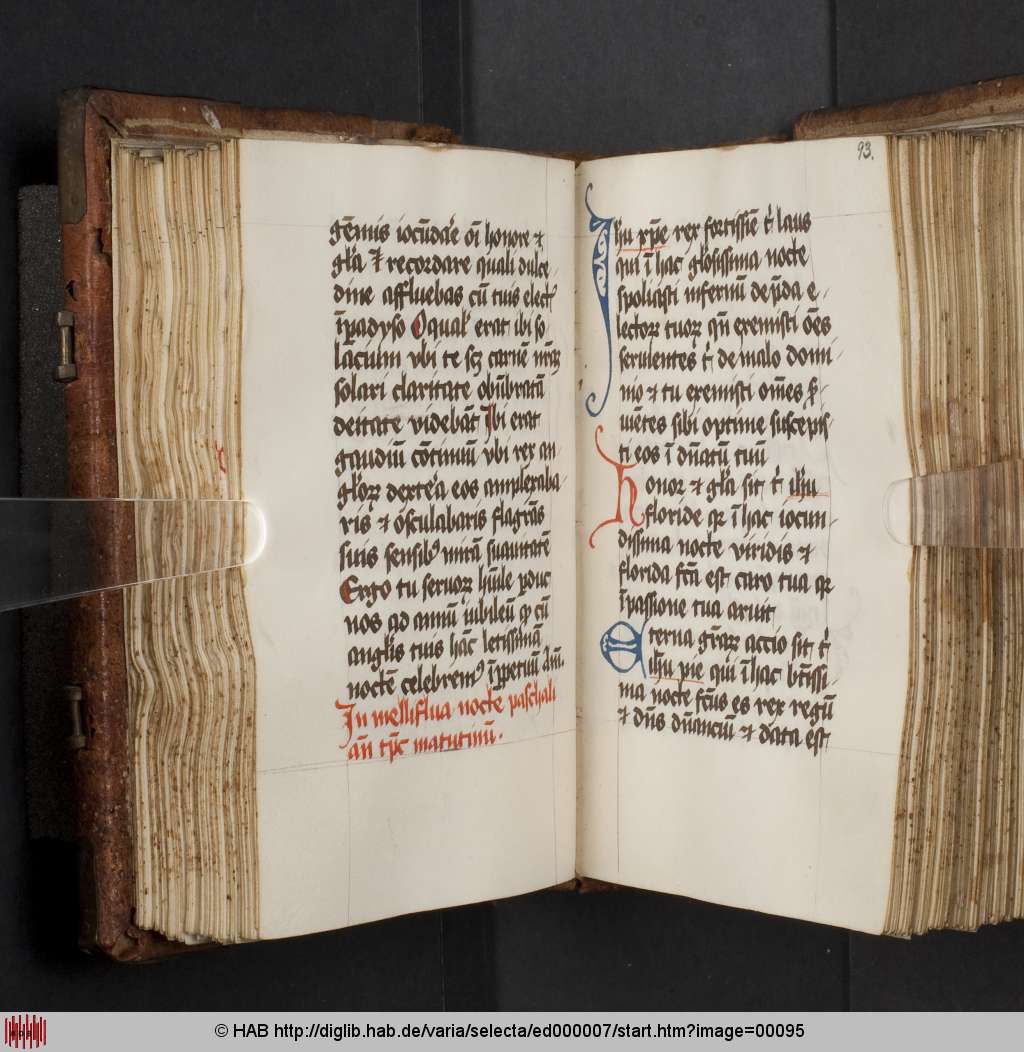 gēmis iocūdar̄ oī honore ⁊
gl̄ia recordare quali dulce
dine affluebas cū tuis elect᷒
ī padyso O qual᷒ erat ibi so
lacium vbi te sꝫ carnē
solari claritate obūbratā
deitate videbāt Ibi erat
gaudiū cōtinuū vbi rex an
gl̄oꝝ dexteᷓa eos amplexaba
ris ⁊ osculabaris flagrās
suis sensib᷒ mirā suauitatē
Ergo tu seruoꝝ hūile ꝑduc
nos ad annū iubileū cū
angl̄is tuis hāc letissimā
noctē celebrem᷒ ī ꝑpetuū Am̄.
In melliflua nocte paschali
an̄ tp̄c matutinū.
93.
Ihū xp̄e rex fortissīe t᷑ laus
qui ī hac gl̄osissima nocte
spoliasti infernū de p̄da e
lectorꝝ tuoꝝ qn̄ exemisti oēs
seruientes t᷑ de malo domi
nio ⁊ tu exemisti om̄es
uiētes sibi optime suscepis
ti eos ī dūatū tuū
Honor ⁊ gl̄ia sit t᷑ ih̄u
floride qr ī hac iocun
dissima nocte viridis ⁊
florida fc̄a est caro tua qr
ī passione tua aruit
Eterna grāꝝ accio sit t᷑
ih̄u pie qui ī hac btīssi
ma nocte fcūs es rex regū
⁊ dn̄s dn̄anciū ⁊ data est
© HAB http://diglib.hab.de/varia/selecta/ed000007/start.htm?image=00095